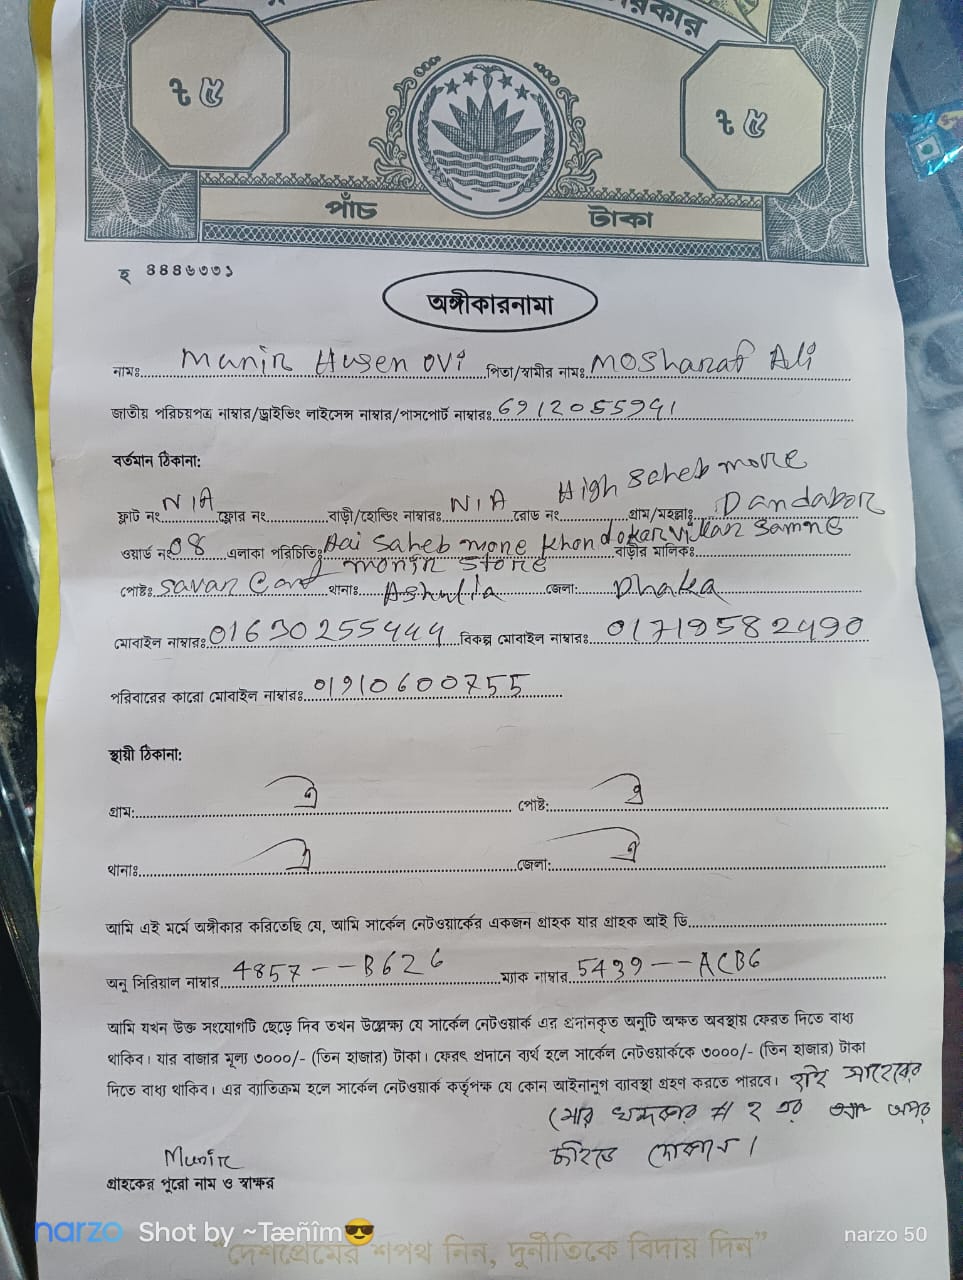 সরকার
৳ ৫ ৳ ৫
পাঁচ টাকা
হ ৪৪৪৬৩৩১
অঙ্গীকারনামা
নামঃ Munir Husen OVI পিতা/স্বামীর নামঃ Mosharaf Ali
জাতীয় পরিচয়পত্র নাম্বার/ড্রাইভিং লাইসেন্স নাম্বার/পাসপোর্ট নাম্বারঃ 6912055941
বর্তমান ঠিকানা:
High Saheb more
ফ্লাট নং N/A ফ্লোর নং বাড়ী/হোল্ডিং নাম্বারঃ N/A রোড নং গ্রাম/মহল্লাঃ Dandabor
ওয়ার্ড নং 08 এলাকা পরিচিতিঃ Hai Saheb more Khondokar villar Samne বাড়ীর মালিকঃ
monir Store
পোষ্টঃ Savar Cant থানাঃ Ashulia জেলা: Dhaka
মোবাইল নাম্বারঃ 01630255444 বিকল্প মোবাইল নাম্বারঃ 01719582490
পরিবারের কারো মোবাইল নাম্বারঃ 01910600755
স্থায়ী ঠিকানা:
গ্রাম: ঐ পোষ্ট: ঐ
থানাঃ ঐ জেলা: ঐ
আমি এই মর্মে অঙ্গীকার করিতেছি যে, আমি সার্কেল নেটওয়ার্কের একজন গ্রাহক যার গ্রাহক আই ডি
অনু সিরিয়াল নাম্বার 4857---B626 ম্যাক নাম্বার 5439---ACB6
আমি যখন উক্ত সংযোগটি ছেড়ে দিব তখন উল্লেক্ষ্য যে সার্কেল নেটওয়ার্ক এর প্রদানকৃত অনুটি অক্ষত অবস্থায় ফেরত দিতে বাধ্য
থাকিব। যার বাজার মূল্য ৩০০০/- (তিন হাজার) টাকা। ফেরৎ প্রদানে ব্যর্থ হলে সার্কেল নেটওয়ার্ককে ৩০০০/- (তিন হাজার) টাকা
দিতে বাধ্য থাকিব। এর ব্যাতিক্রম হলে সার্কেল নেটওয়ার্ক কর্তৃপক্ষ যে কোন আইনানুগ ব্যাবস্থা গ্রহণ করতে পারবে। হাই সাহেবের
মোর খন্দকার # ২ এর
দোকান।
Munir
গ্রাহকের পুরো নাম ও স্বাক্ষর
narzo Shot by ~Tæñîm😎 narzo 50
"দেশপ্রেমের শপথ নিন, দুর্নীতিকে বিদায় দিন"